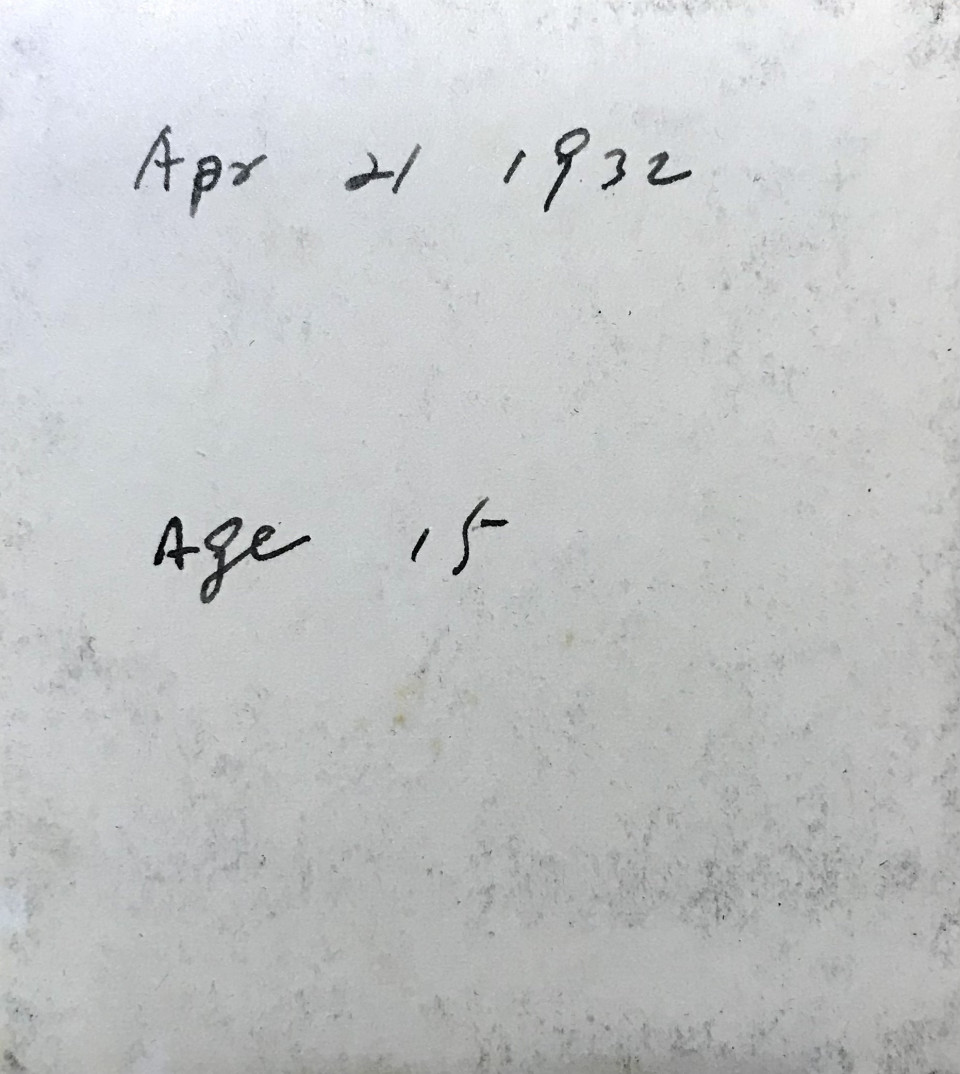 Apr 21 1932
Age 15